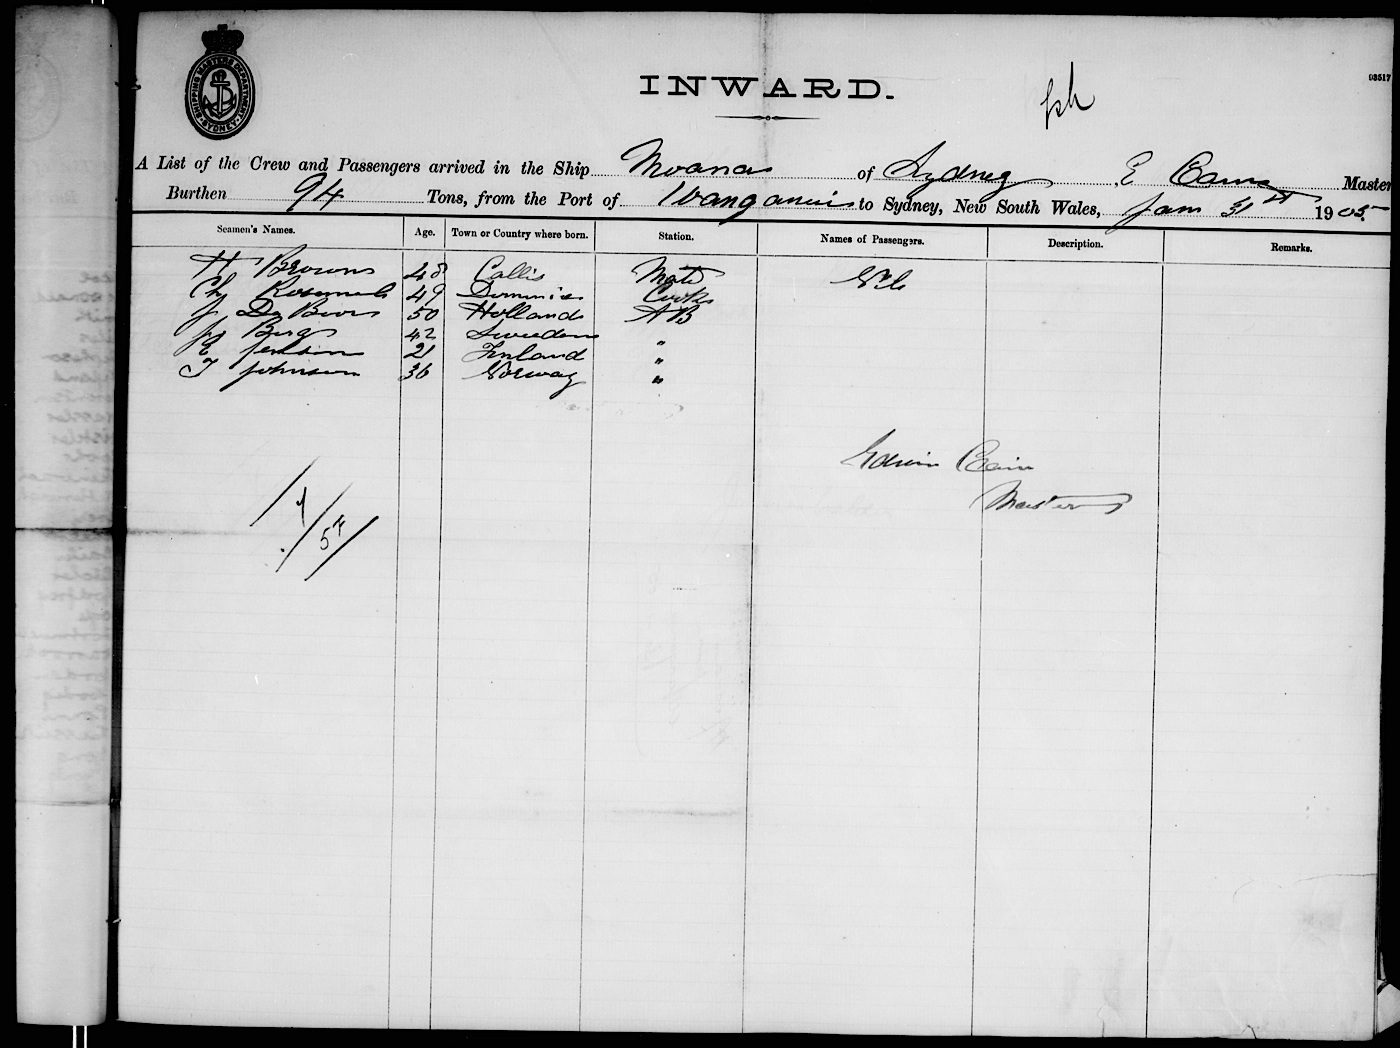 SHIPPING MASTERS DEPARTMENT SYDNEY
INWARD.
93517
A List of the Crew and Passengers arrived in the Ship Moana of Sydney E Master
Burthen 94 Tons, from the Port of Wanganui to Sydney, New South Wales, Jan 31st 1905
Seamen's Names. Age. Town or Country where born. Station. Names of Passengers. Description. Remarks.
H Brown 48 Callis Mate Nil
49 Dominica Cook
De Boer 50 Holland AB
Berg 42 Sweden "
Jenson 21 Finland "
Johnson 36 Norway "
Edwin
Master